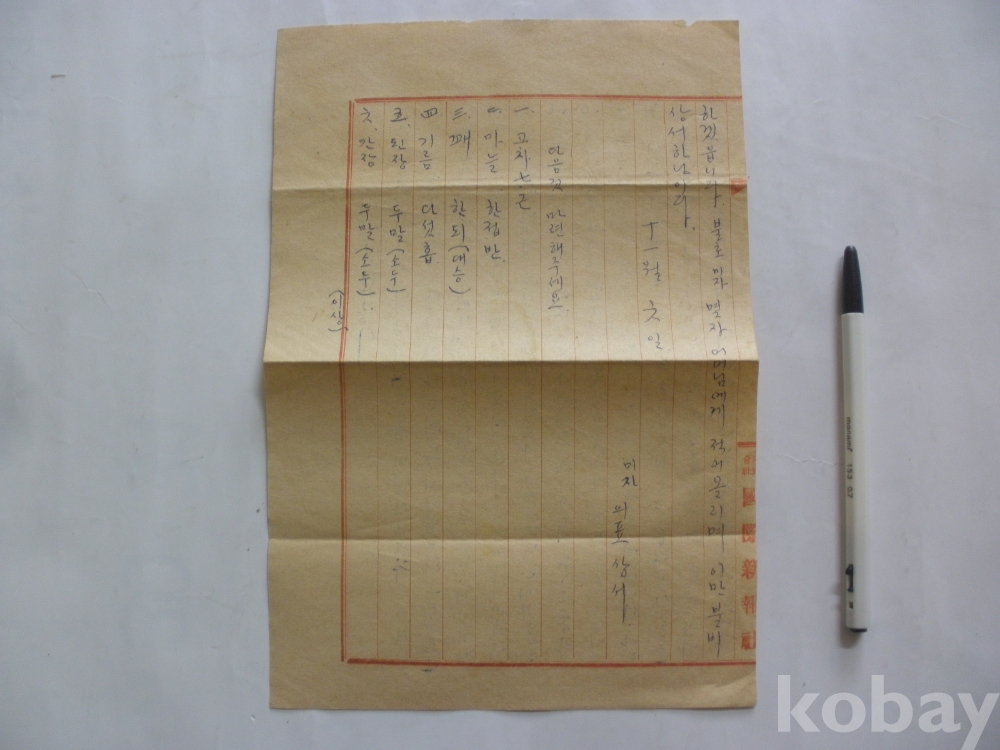 하겟읍니다. 불초 미자 몇자 어머님에게 적어올리며 이만 불비
상서하나이다.
十一월 六일
미자 의표 상서
다음것 마련해주세요.
一. 고차 七근
二. 마늘 한접반.
三. 깨 한되(대승)
四 기름 다섯홉
五. 된장 두말(소두)
六. 간장 두말(소두)
(이상)
國際新報社
kobay